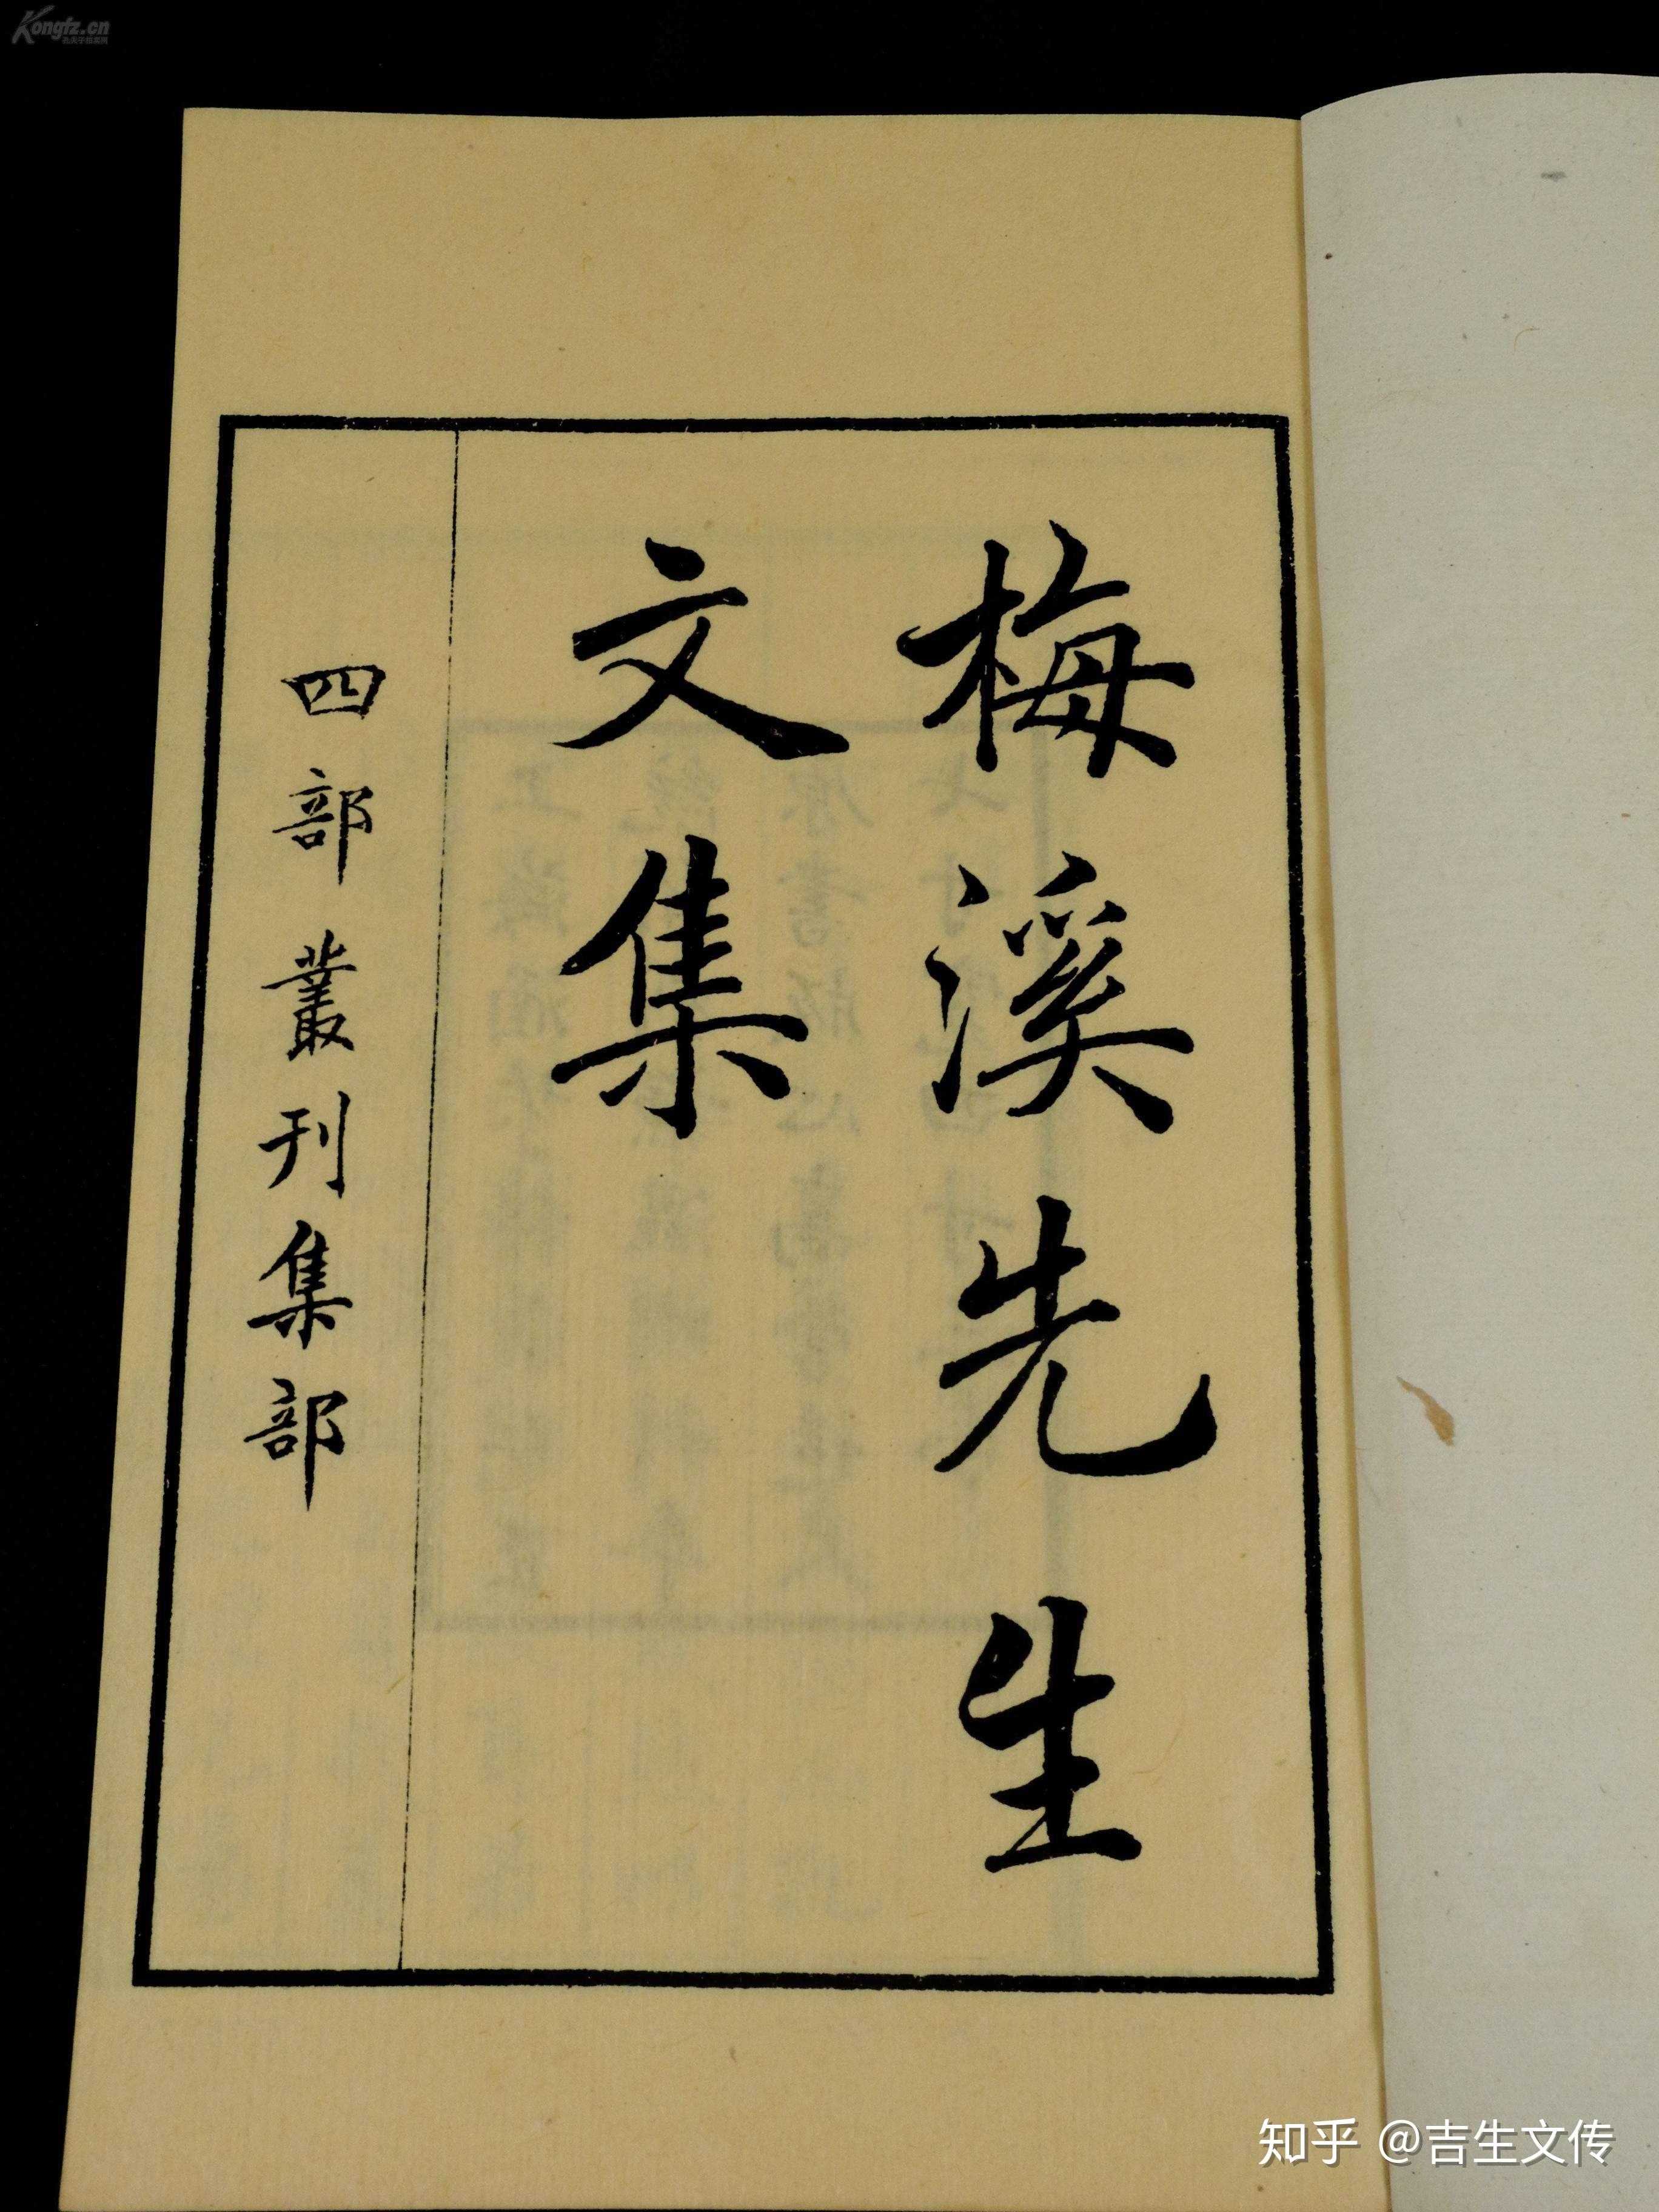 Kongfz.cn
孔夫子拍卖网
梅溪先生
文集
四部叢刊集部
知乎 @吉生文传